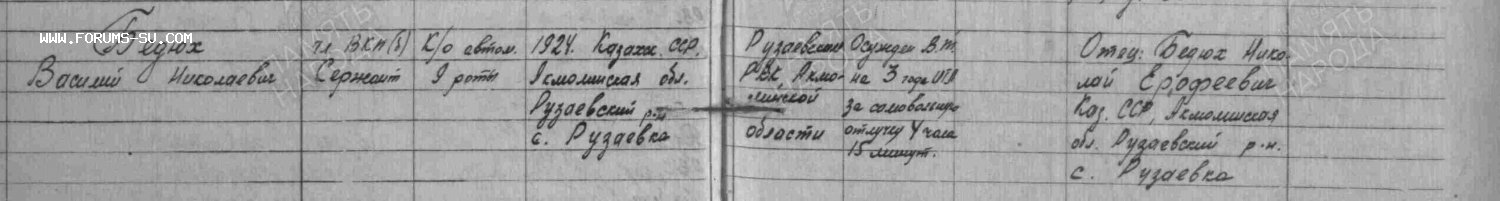 www.forums-su.com
Бедюх чл ВКП(б) К/о автом. 1924. Казахск. ССР. Рузаевским Осужден В.Т. Отец: Бедюх Нико-
Василий Николаевич Сержант 9 роты Акмолинская обл. РВК Акмо- на 3 года ИТЛ лай Ерофеевич
Рузаевский р-н линской за самовольную Каз. ССР, Акмолинская
с. Рузаевка области отлучку 4 часа обл. Рузаевский р-н.
15 минут. с. Рузаевка
ПАМЯТЬ НАРОДА